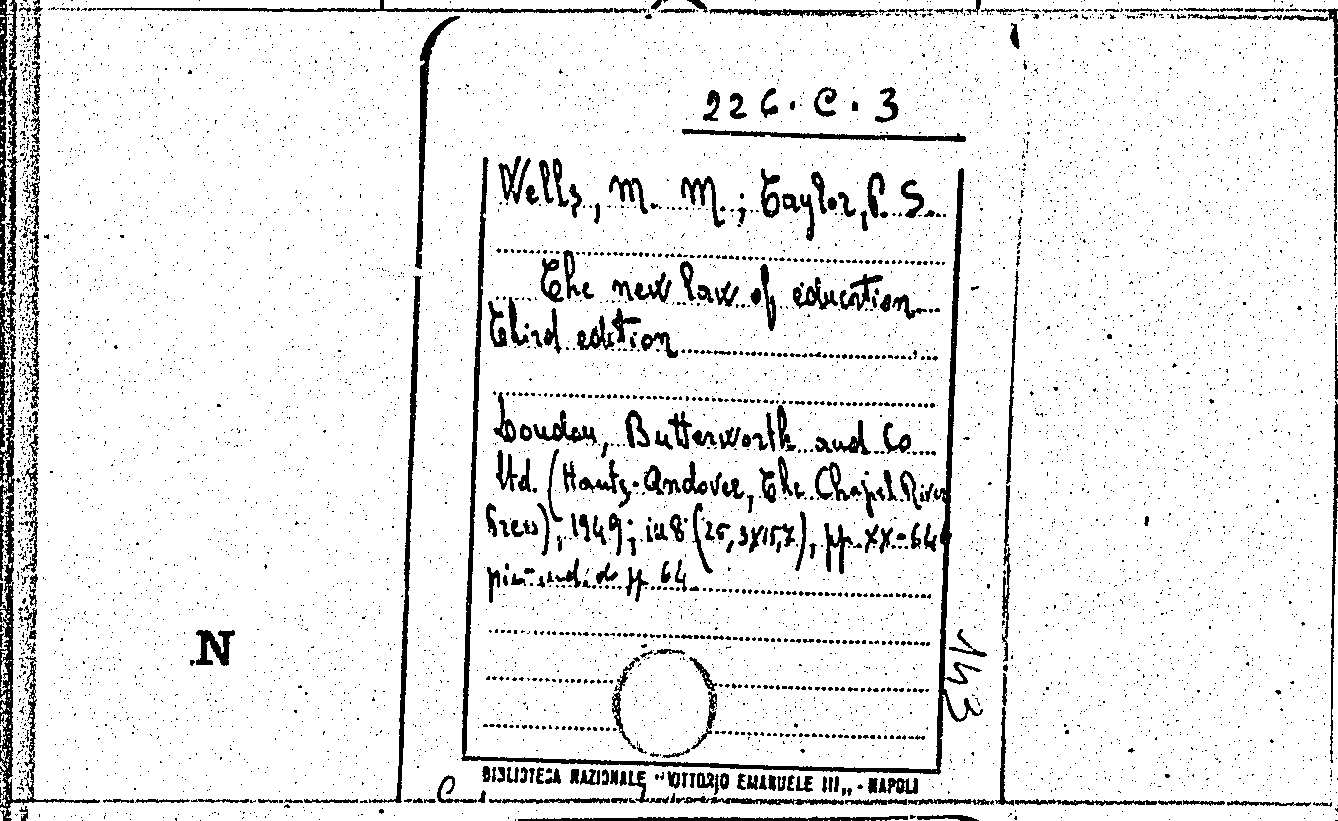 226.C.3
Wells, M. M.; Taylor, P. S.
The new law of education
Third edition
London, Butterworth and Co
Ltd. (Hants-Andover, The Chapel River
Press), 1949; in 8 (25,3x15,7), pp. xx-644
più ind. di pp. 64
N
143
BIBLIOTECA NAZIONALE "VITTORIO EMANUELE III„ - NAPOLI